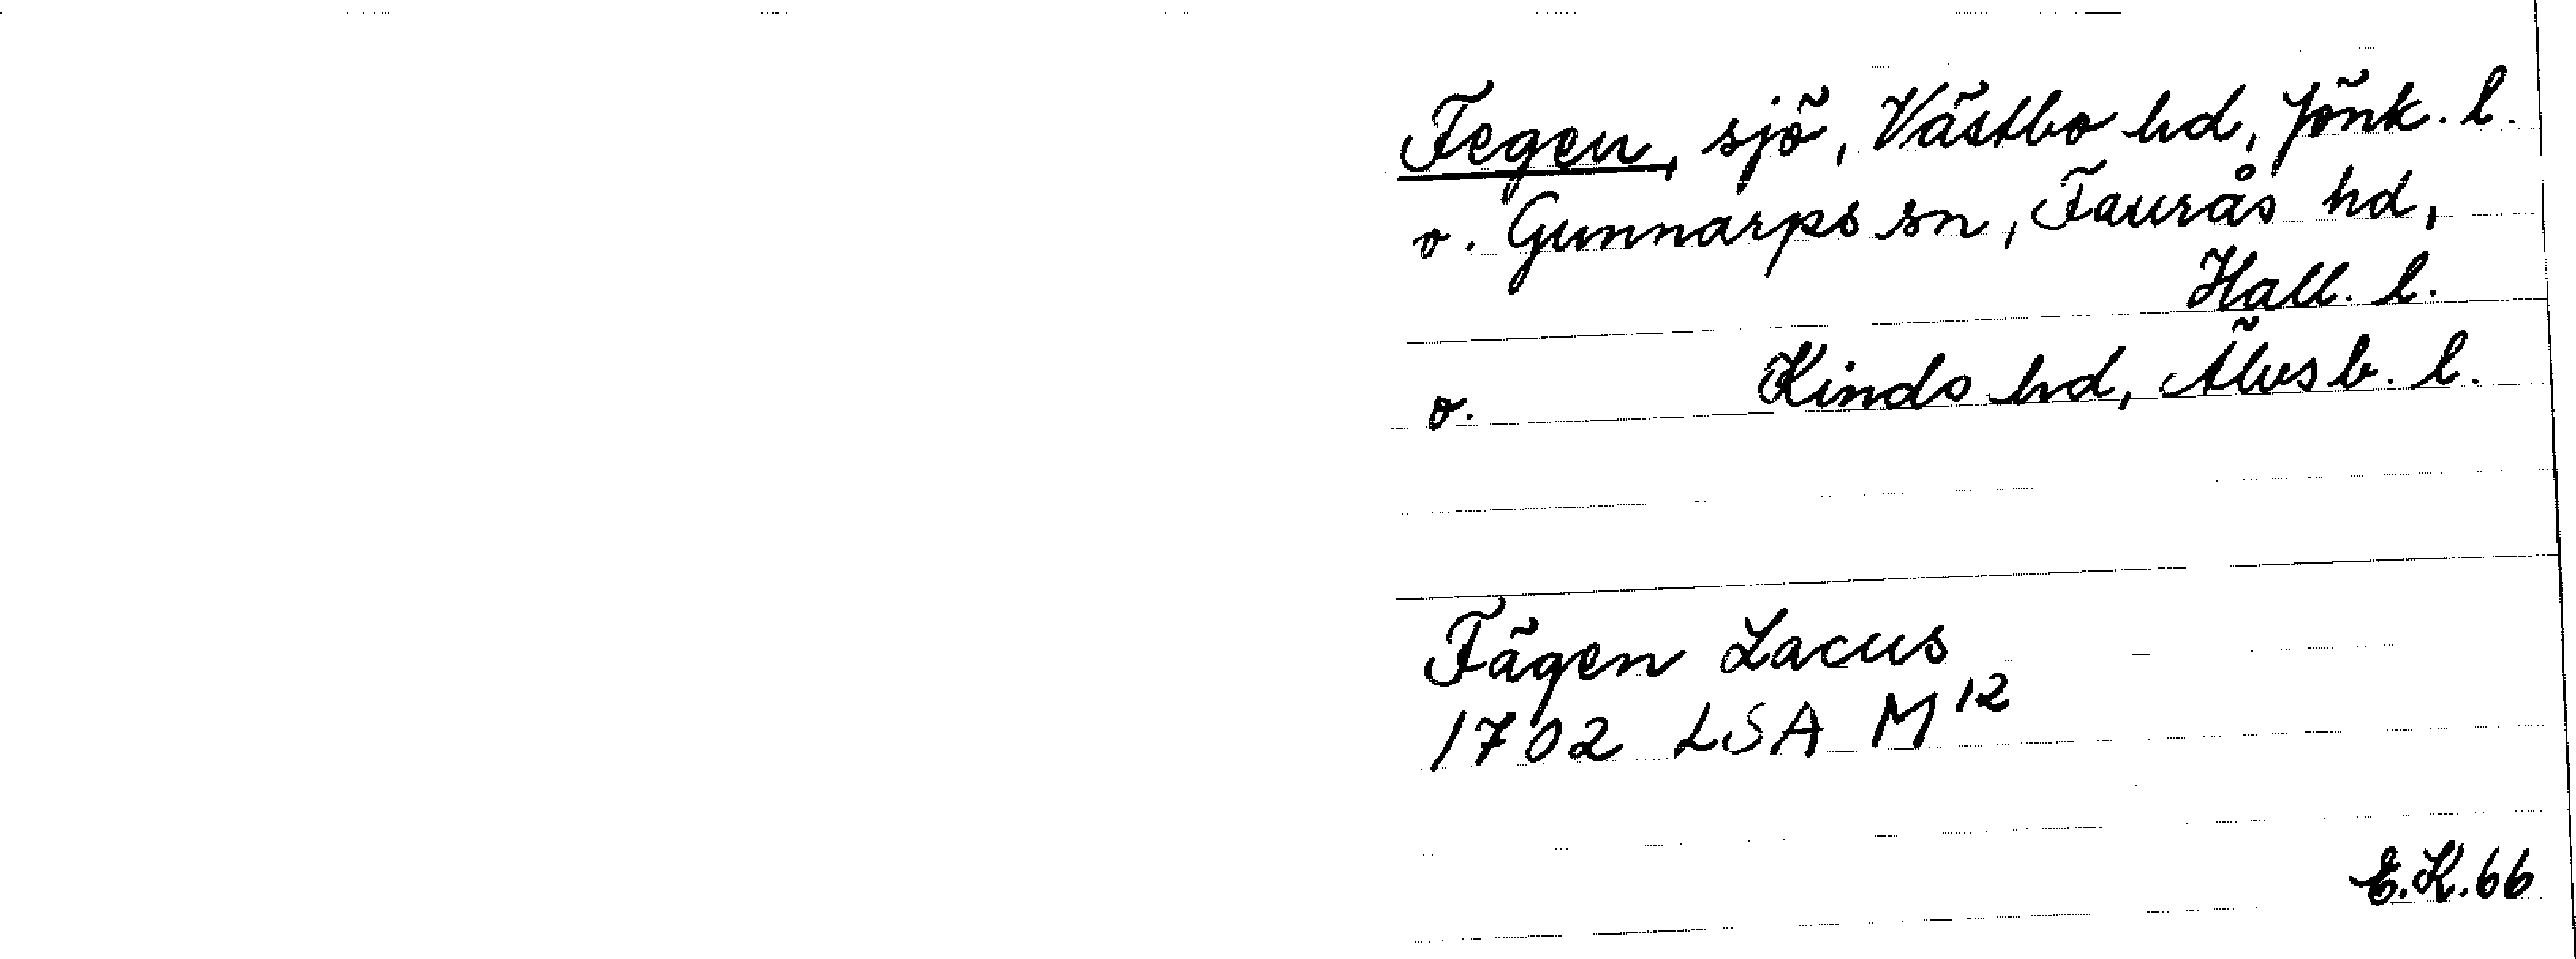 Fegen, sjö, Västbo hd, Jönk. l.
o. Gunnarps sn, Faurås hd,
Hall. l.
o. Kinds hd, Älvsb. l.
Fägen Lacus
1702 LSA M¹²
E.K.66